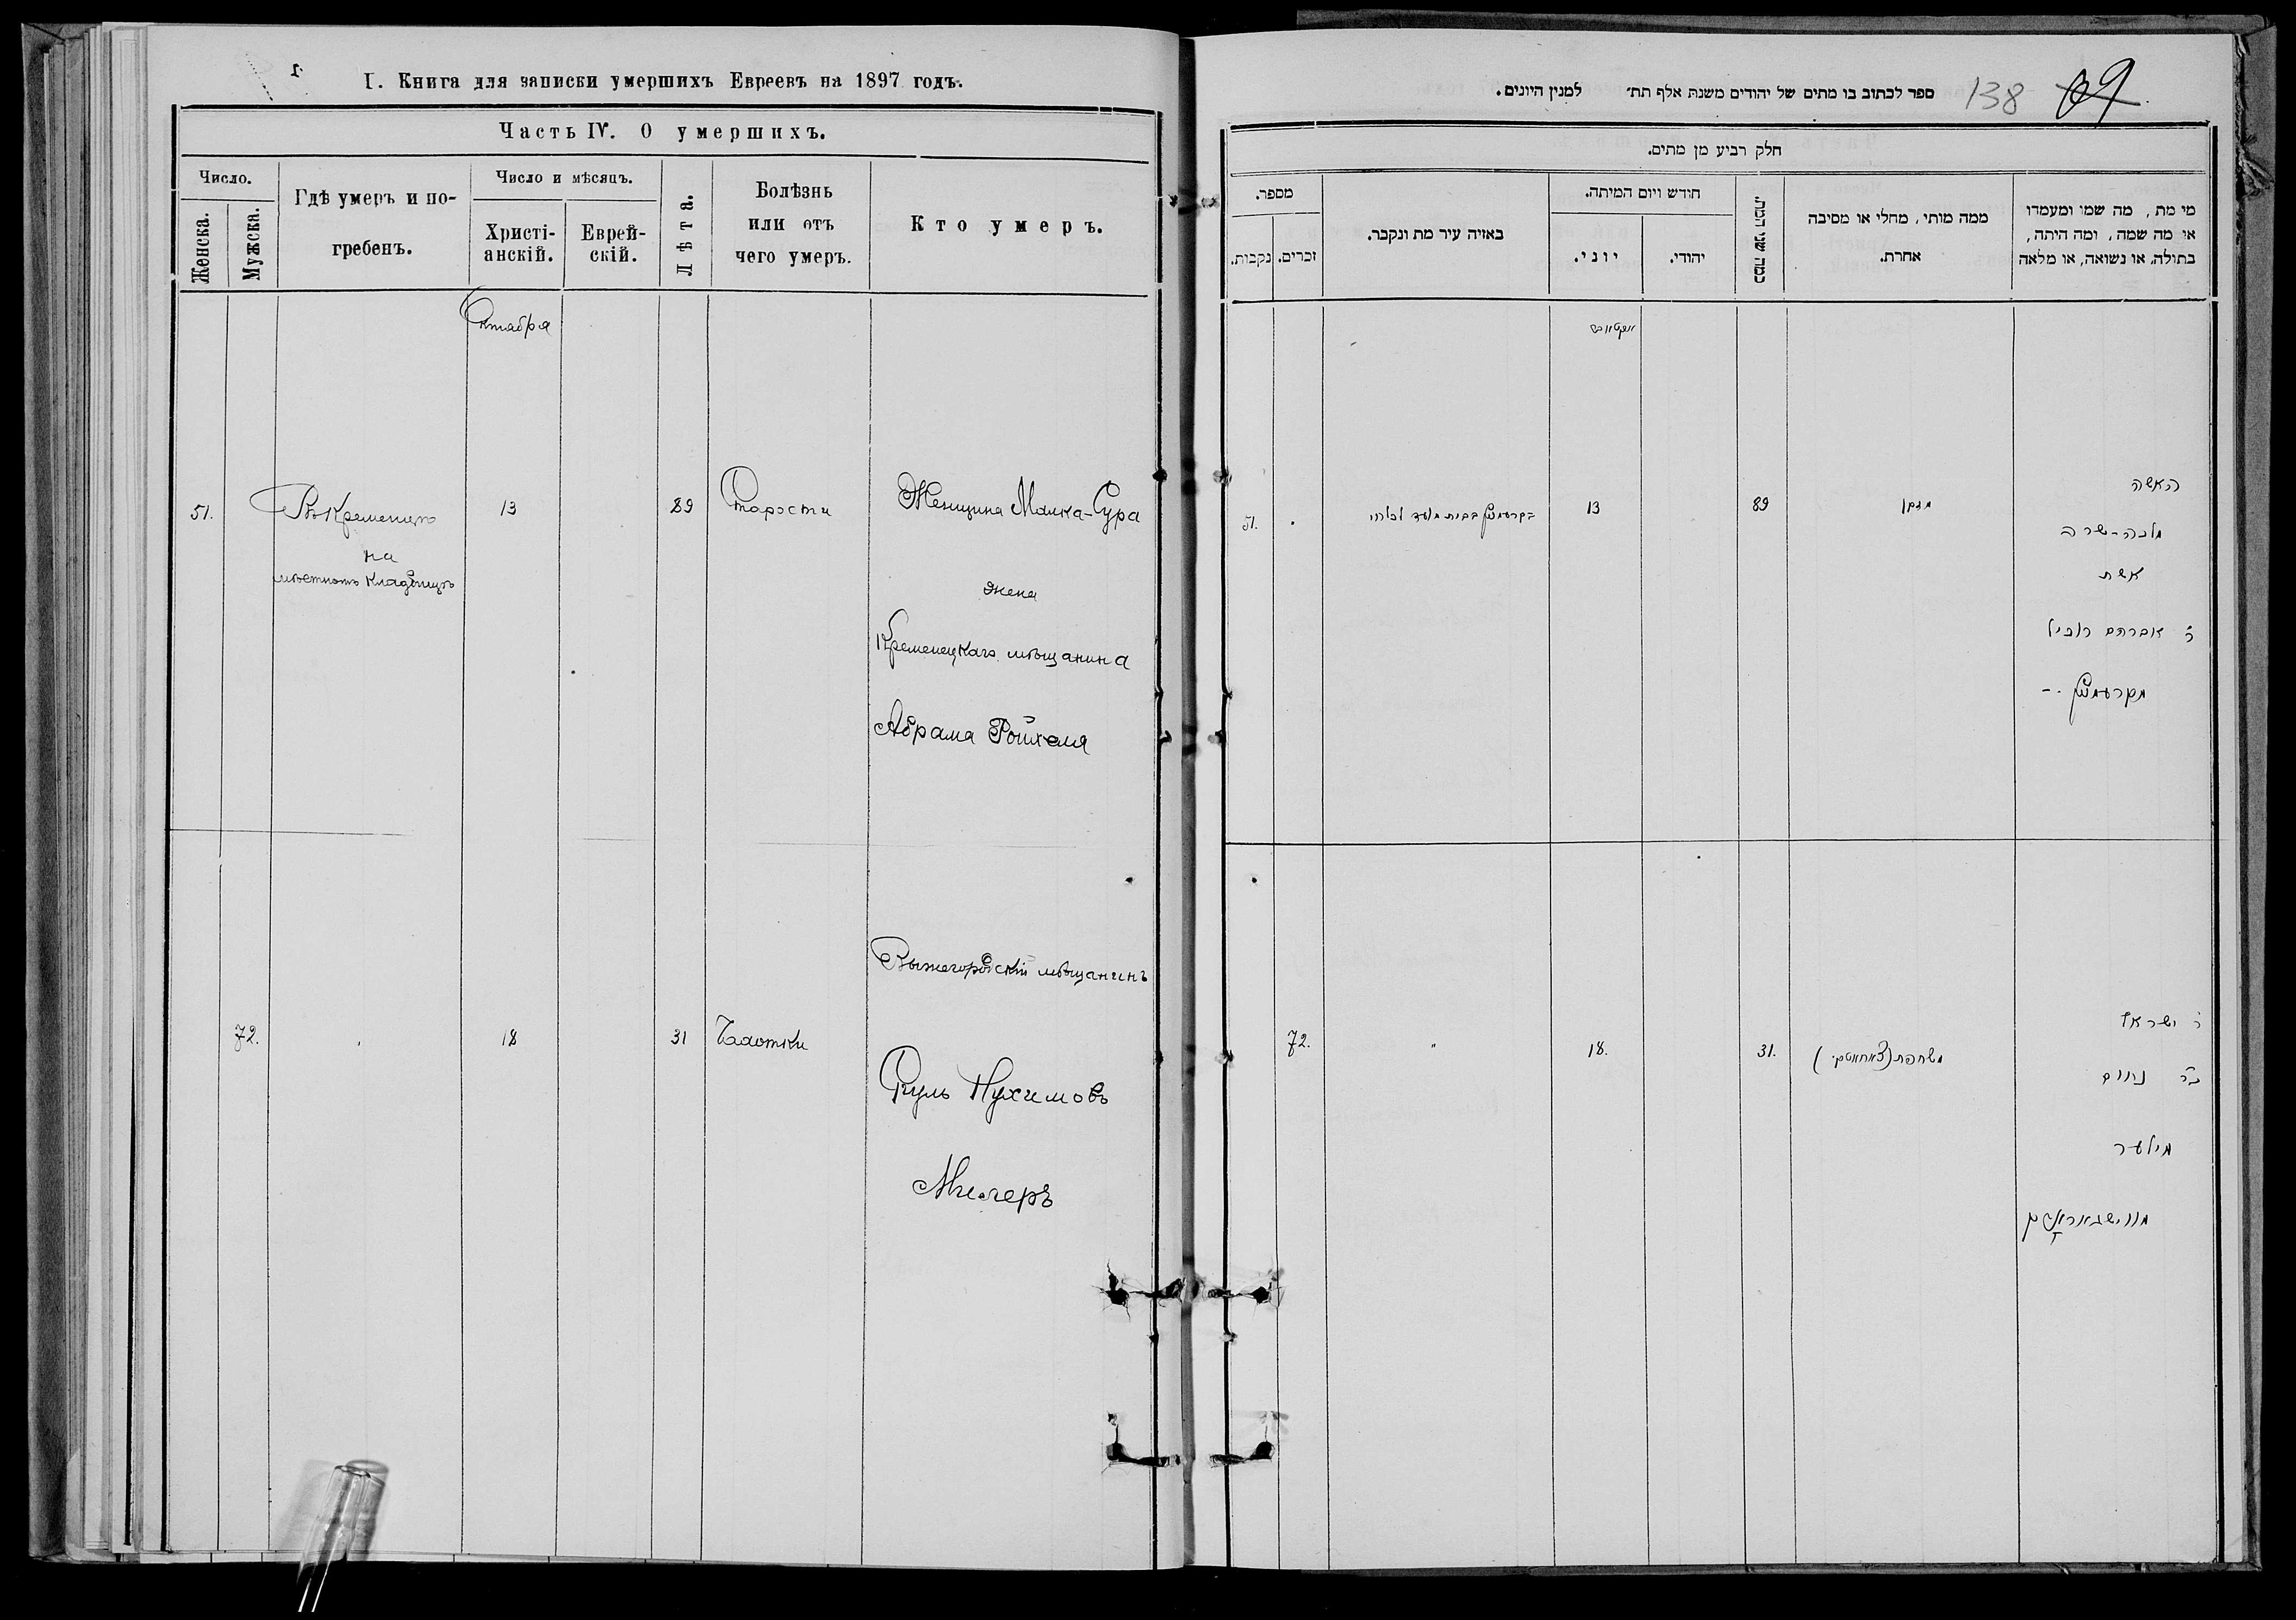 I. Книга для записки умершихъ Евреевъ на 1897 годъ.
Часть IV. О умершихъ.
Число.
Женска.
Мужска.
Гдѣ умеръ и по-
гребенъ.
Число и мѣсяцъ.
Христі-
анскій.
Еврей-
скій.
Лѣта.
Болѣзнь
или отъ
чего умеръ.
Кто умеръ.
Октября
51.
Въ Кременцѣ
на
мѣстномъ кладбищѣ
13
89
Старости
Женщина Малка-Сура
жена
Кременецкаго мѣщанина
Абрама Ройхеля
72.
18
31
Чахотки
Вышегородскій мѣщанинъ
Сруль Нухимовъ
Миллеръ
138
ספר לכתוב בו מתים של יהודים משנת אלף תת׳ למנין היונים.
חלק רביע מן מתים.
מספר.
נקבות.
זכרים.
באיזה עיר מת ונקבר.
חודש ויום המיתה.
יוני.
יהודי.
כמה שני המת.
ממה מותו, מחלי או מסיבה
אחרת.
מי מת, מה שמו ומעמדו
או מה שמה, ומה היתה,
בתולה, או נשואה, או מלאה
51.
13
89
מזקן
האשה
מלכה-שרה
אשת
ר׳ אברהם רויכיל
מקרעמניץ
72.
"
18.
31.
ר׳ ישראל
ב״ר נחום
מילער